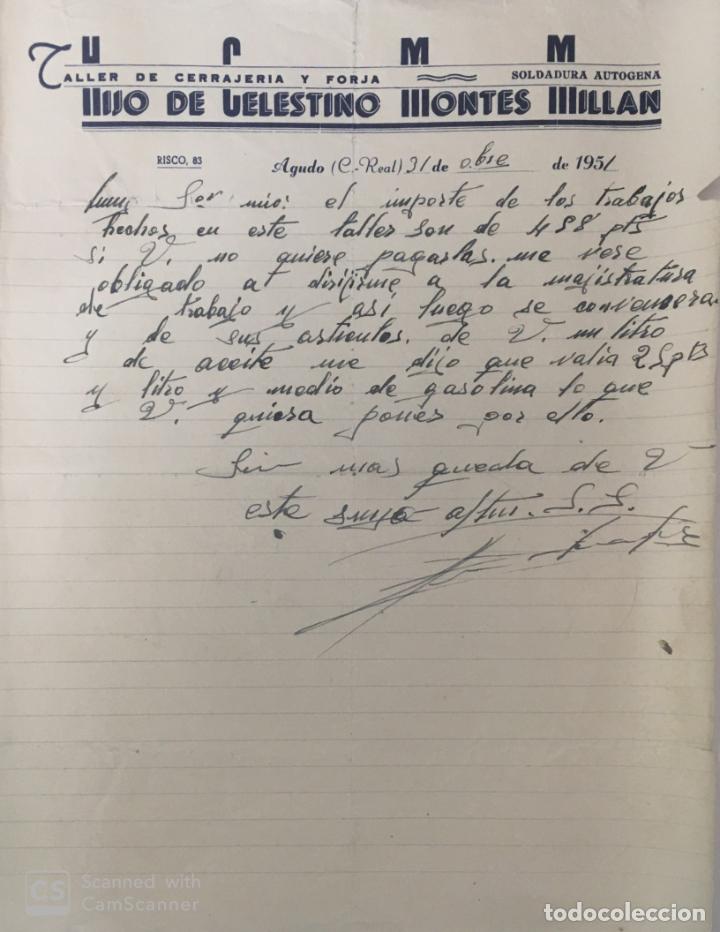 H C M M
TALLER DE CERRAJERIA Y FORJA SOLDADURA AUTOGENA
HIJO DE CELESTINO MONTES MILLAN
RISCO, 83
Agudo (C.-Real) 31 de obre de 1951
Muy Sor mio: el importe de los trabajos
hechos en este taller son de 488 pts
si V. no quiere pagarlas. me vere
obligado a dirijirme a la majistratura
de trabajo y así luego se convencera
y de sus articulos. de V. un litro
de aceite me dijo que valia 25 pts
y litro y medio de gasolina lo que
V. quiera poner por ello.
Sin mas queda de V
este suyo aftmo. S. S.
CS Scanned with
CamScanner
todocoleccion